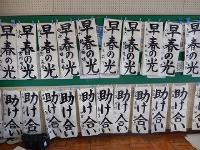 早春の光
早春の光
早春の光
早春の光
早春の光
早春の光
早春の光
早春の光
早春の光
助け合い
助け合い
助け合い
助け合い
助け合い
助け合い
助け合い
助け合い
助け合い